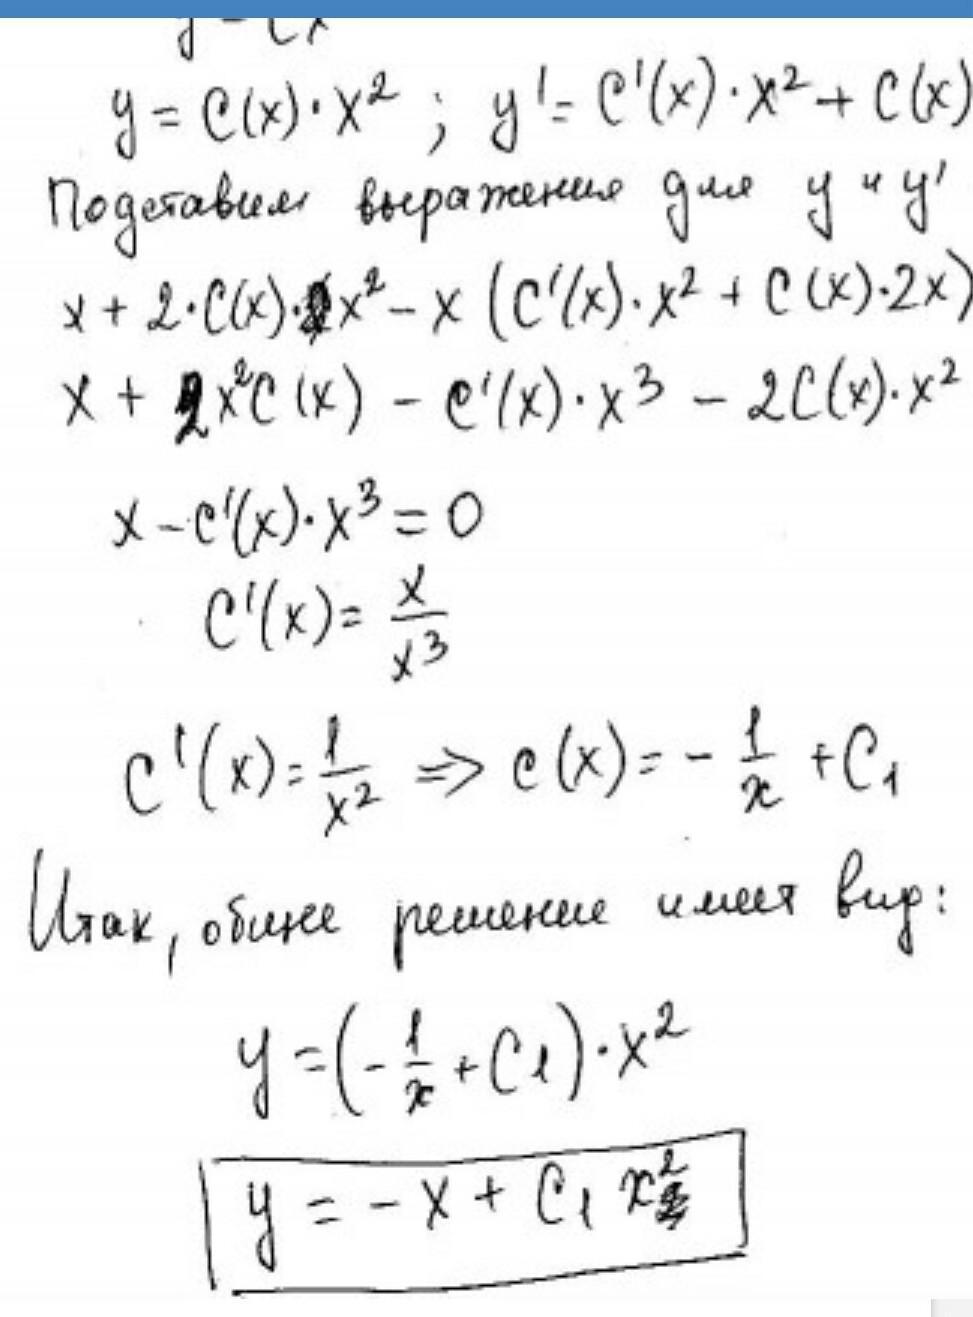 y = C(x)·x² ; y' = C'(x)·x² + C(x)
Подставим выражения для y и y'
x + 2·C(x)·x² – x (C'(x)·x² + C(x)·2x)
x + 2x²C(x) – C'(x)·x³ – 2C(x)·x²
x – C'(x)·x³ = 0
C'(x) = x/x³
C'(x) = 1/x² => C(x) = – 1/x + C₁
Итак, общее решение имеет вид:
y = (– 1/x + C₁)·x²
y = – x + C₁ x²